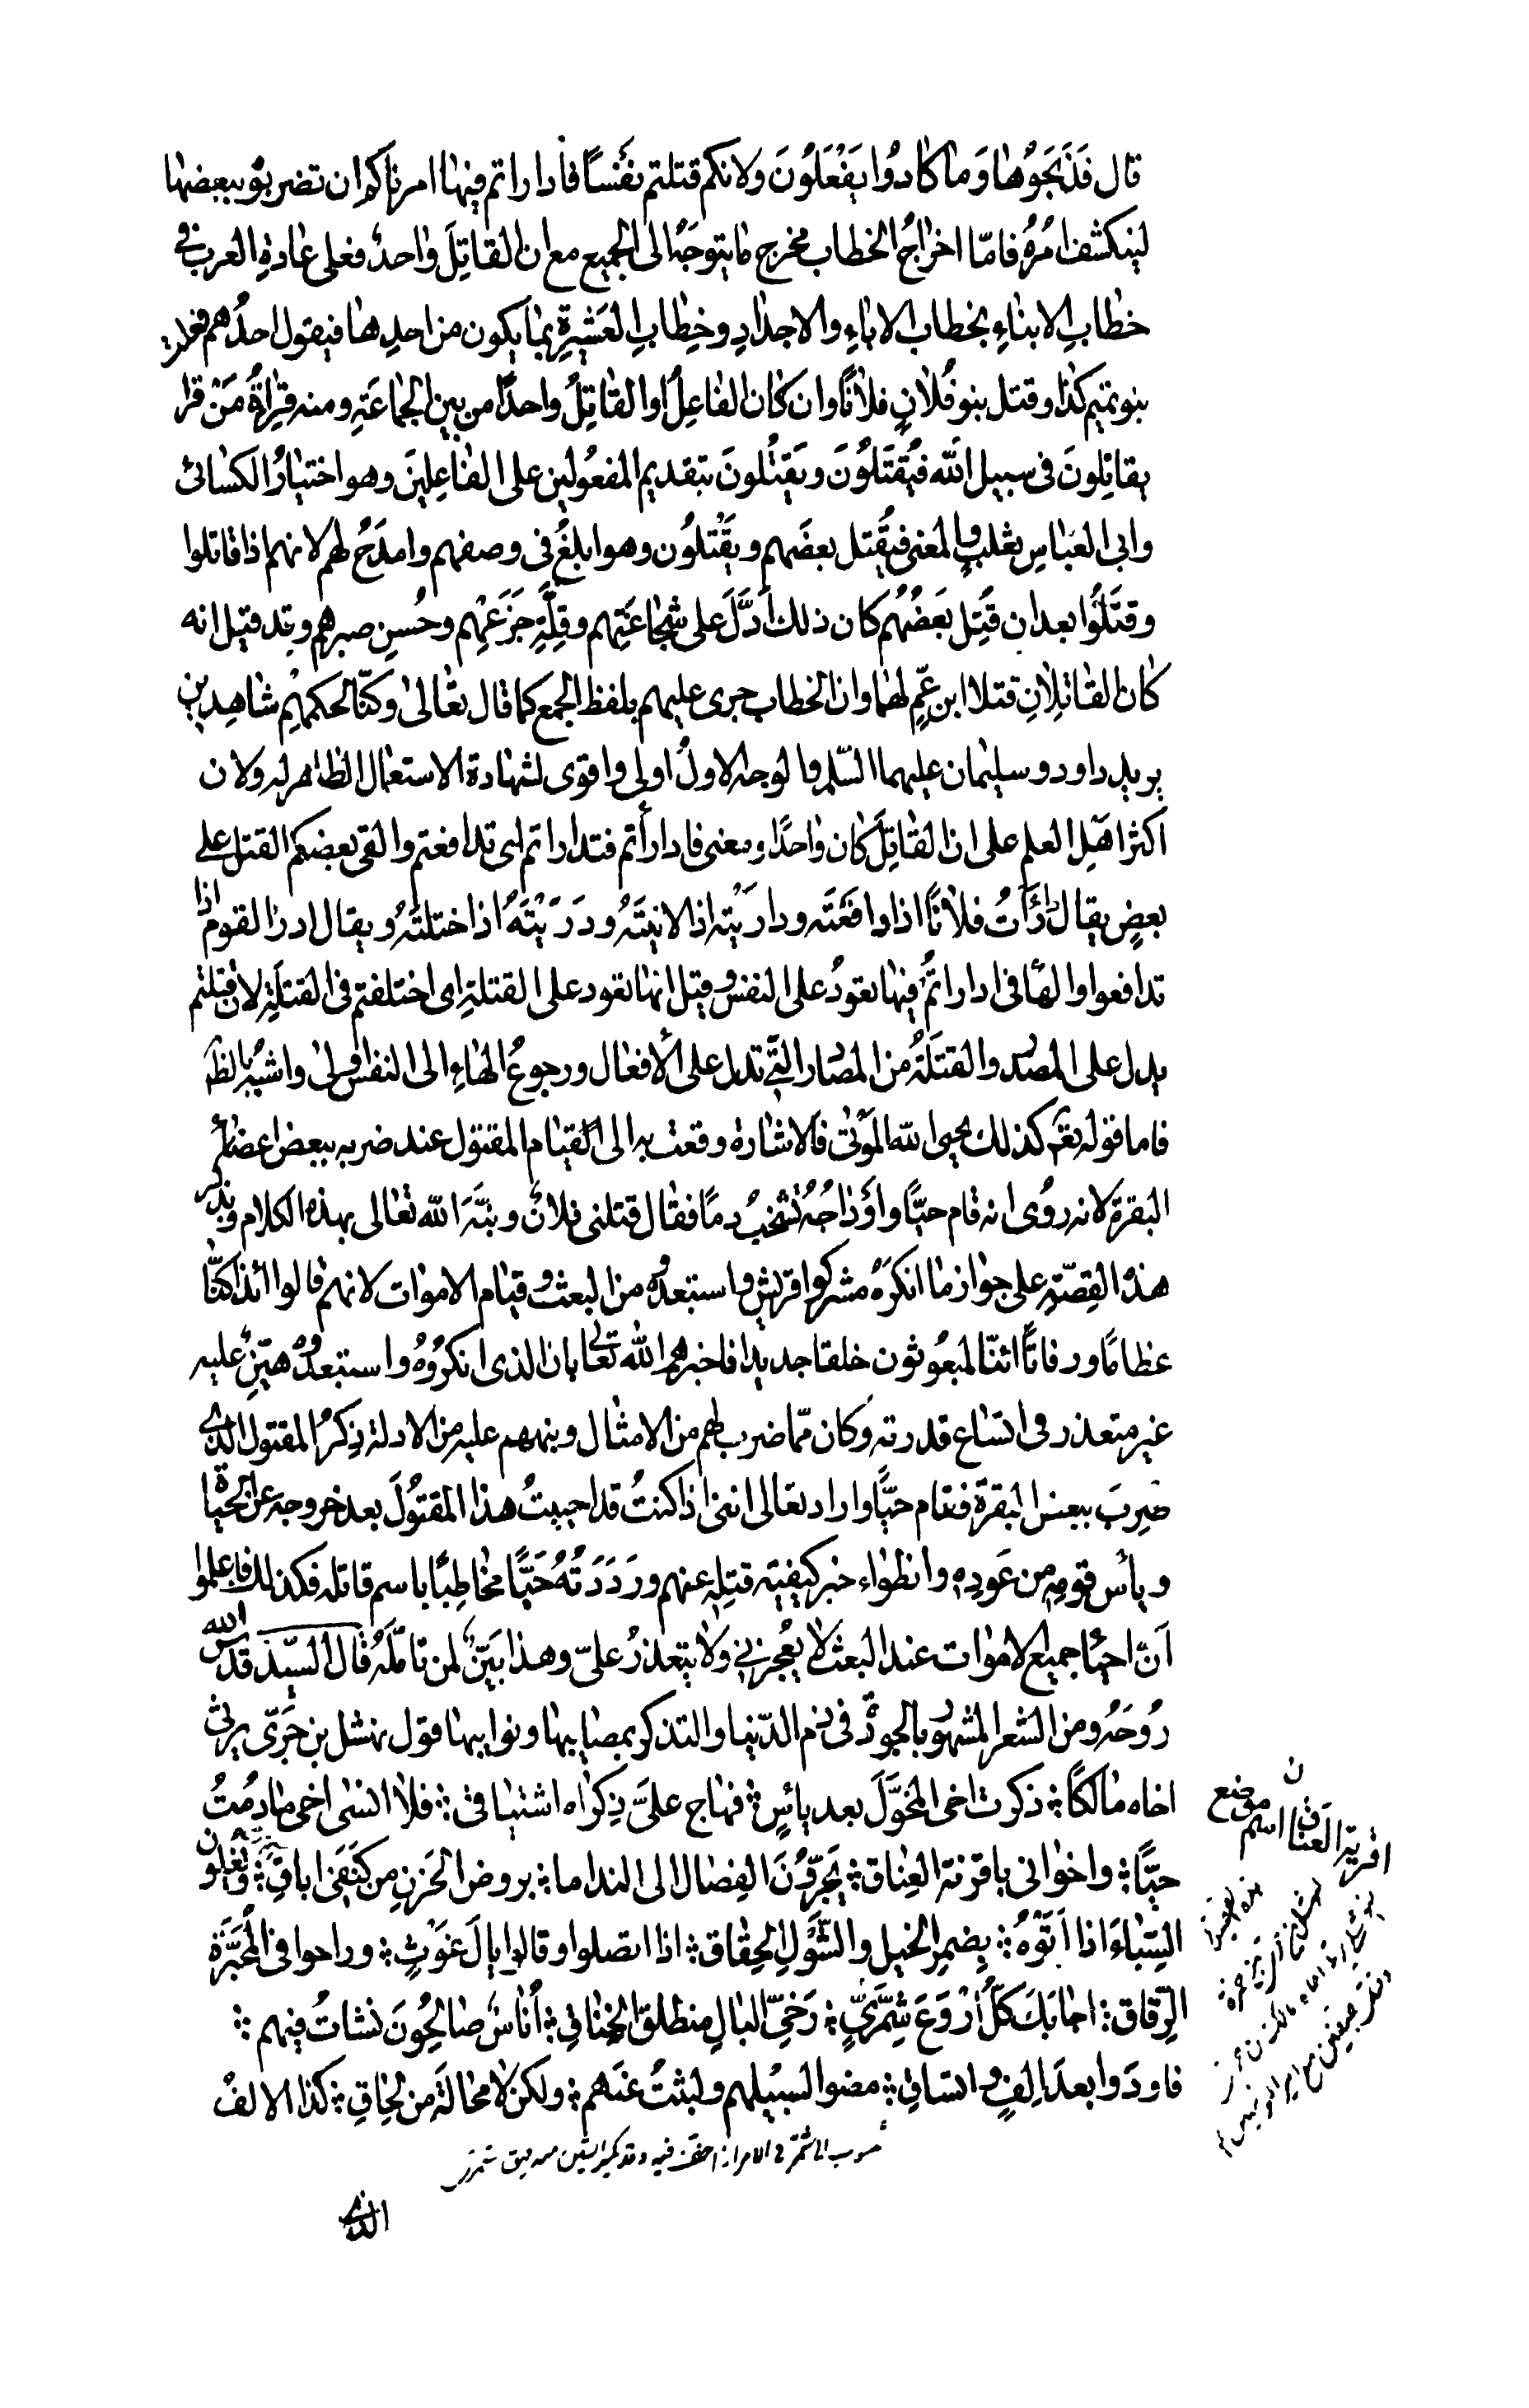 قال فَذَبَحُوْها وَما كادُوا يَفْعَلُونَ ولانكم قتلتم نَفْسًا فادار اتم فيها امرناكم ان تضربوه ببعضها
لينكشف امرُهُ فامّا اخراجُ الخطاب مخرج ما يتوجّه الى الجميع مع ان القاتِلَ واحدٌ فعلى عادةِ العرب فى
خطابِ الابناءِ بخطاب الاباءِ والاجدادِ وخِطابِ العَشيرةِ بما يكون من احدِها فيقول احدُهم فعلت
بنو تميم كذا وقتل بنو فُلانٍ فلانًا وان كان الفاعِلُ او القاتِلُ واحدًا من بين الجماعَةِ ومنه قِراءَةُ مَنْ قرا
يقاتِلونَ فى سبيل اللّه فَيُقتَلُونَ ويَقتُلونَ بتقديم المفعُولين على الفاعِلِينَ وهو اختيارُ الكسائىّ
وابى العبّاسِ ثعلبٍ والمعنى فيُقتل بعضهم ويَقْتلُون وهو ابلغُ فى وصفهم وامدَحُ لهم لانهم اذا قاتلوا
وقتَّلُوا بعد ان قُتِل بَعضُهُم كان ذلك اَدَلَّ على شجاعَتِهم وقِلَّةِ جَزَعِهِم وحُسنِ صبرهم وقد قيل انه
كان القاتِلانِ قتلا ابن عَمٍّ لهما وان الخطاب جرى عليهم بلفظ الجمع كما قال تعالى وكنّا لحكمهم شاهِدين
يريد داود وسليمان عليهما السّلم والوجه الاولُ اولى واقوى لشهادة الاستعمال الظاهر له ولان
اكثر اهَلِ العلم على ان القاتِلَ كان واحدًا ومعنى فادارأتم فتدار اتم اى تدافعتم والقى بعضكم القتل على
بعضٍ يقال دارَأتُ فلانًا اذا دافعَتَه وداريَتَه اذا لاينتَهُ ودَرَيْتَهُ اذا ختلتَهُ ويقال ادرا القوم اذا
تدافعوا والهأ فى ادار اتمُ فيها تعودُ على النفس وقيل انها تعود على القتلةِ اى اختلفتم فى القتلَةِ لان قتلتم
يدل على المصدر والقتلَةُ من المصادر التى تدل على الأفعال ورجوعُ الهاءِ الى النفس اولى واشبَهُ بالظا
فاما قوله تعٓ كذلك يحيى اللّه المَوْتى فالاشارة وقعت به الى القيام المقتول عند ضربه ببعض اعضاءِ
البقرة لانه رُوِى انه قام حيًّا واَوْداجُهُ تشخبُ دمًا فقال قتلنى فلانٌ ونبَّه اللّه تعالى بهذه الكلام وبذكر
هذه القِصّةِ على جواز ما انكرَهُ مشركوا قريش واستبعدُوه من البعث وقيام الاموات لانهم قالوا ائذا كنّا
عظامًا ورفاتًا ائنّا لمبعُوثون خلقا جديدا فاخبرهم اللّه تعالى بان الذى انكرُوُهُ واستبعدُوهُ هيّنٌ عليه
غير متعذر فى اتساع قدرته وكان ممّا ضرب لهم من الامثال ونبههم عليه من الادلة ذِكرُ المقتول الذى
ضُرِبَ ببعض البقرة فقام حيًّا واراد تعالى اننى اذا كنتُ قد احييتُ هذا المقتُولَ بعد خروجه عن الحياة
ويأس قومِهِ من عَودِهِ وانطواء خبر كيفيته قتلِه عنهم وردَدَتُهُ حَيًّا مخاطِبًا باسم قاتله فكذلك فاعلموا
اَنّ احيأ جميع الاموات عند البعث لا يُعجزنِي ولا يتعذرُ علىّ وهذا بَيّنٌ لمن تامّلَهُ قال السيّد قدس اللّه
رُوحَهُ ومن الشعر المشهور بالجودَةِ فى ذم الدّنيا والتذكر بمصايبها ونوايبها قول نهشل بن حَرِّى يرثى
اخاه مالكًا ؞ ذكرت اخى المخَوَّلَ بعد يائسٍ ؞ فهاج علىَّ ذِكراه اشتياقى ؞ فلا انسٰى اخى ما دمتُ
حيًّا ؞ واخوانى باقرنة العِناق ؞ يَجرّوُنَ الفِصال الى النداما ؞ بروض الحَزنِ من كَنَفَى اُفاقِ ؞ ويغلون
السِّباءَ اذا اَتَوْهُ ؞ بِضمرِ الخيل والشَّوْلِ الحِقاق ؞ اذا اتصلوا وقالوا يالَ غوَثٍ ؞ وراحوا فى المُحبَّرَةِ
الرِّقاق ؞ اجابَكَ كلُّ ارْوَعَ شِمَّرِىٍّ ؞ رَخىِّ البالِ منطلق الخِناقِ ؞ اُناسٌ صالِحُونَ نشاتُ فيهم ؞
فاودَوا بعد اِلِفٍ واتساقِ ؞ مضوا لسبيلهم ولبثتُ عنَهم ؞ ولكن لا محالَةَ من لحِاقِ ؞ كذا الالفُ
ن
اقرنة العناق اسم موضع
الذى